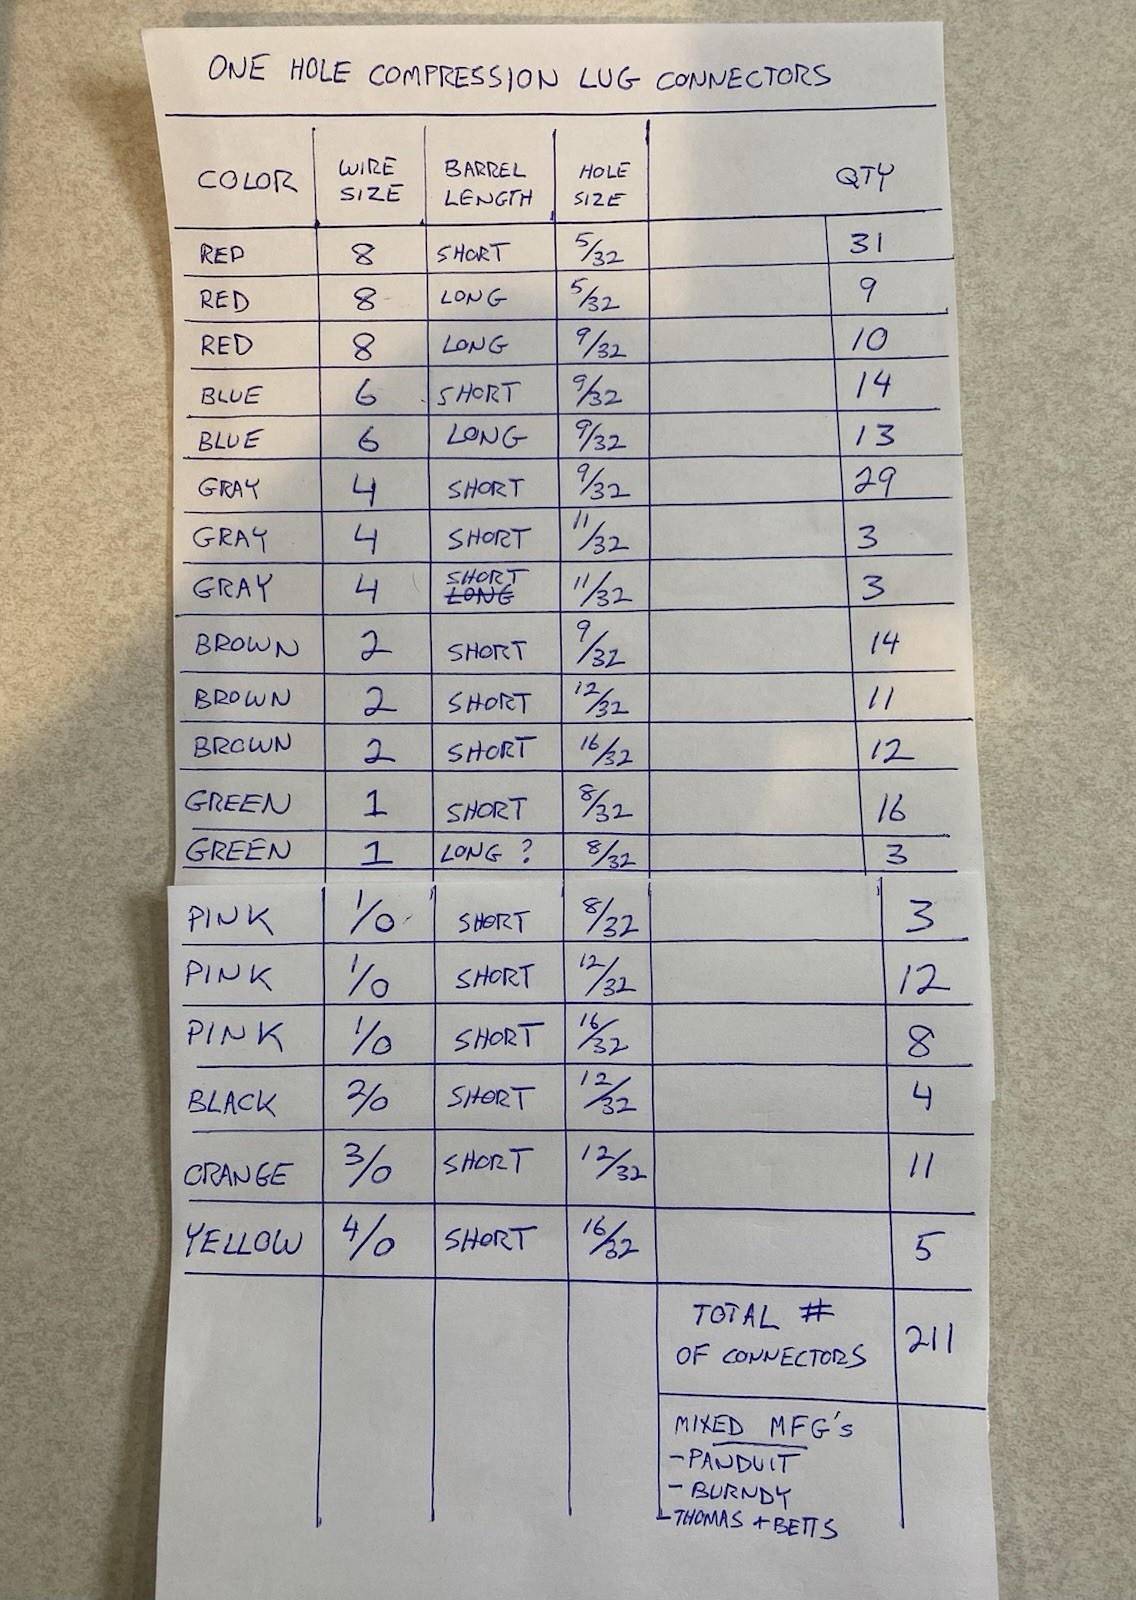 ONE HOLE COMPRESSION LUG CONNECTORS
COLOR WIRE SIZE BARREL LENGTH HOLE SIZE QTY
RED 8 SHORT 5/32 31
RED 8 LONG 5/32 9
RED 8 LONG 9/32 10
BLUE 6 SHORT 9/32 14
BLUE 6 LONG 9/32 13
GRAY 4 SHORT 9/32 29
GRAY 4 SHORT 11/32 3
GRAY 4 SHORT LONG 11/32 3
BROWN 2 SHORT 9/32 14
BROWN 2 SHORT 12/32 11
BROWN 2 SHORT 16/32 12
GREEN 1 SHORT 8/32 16
GREEN 1 LONG ? 8/32 3
PINK 1/0 SHORT 8/32 3
PINK 1/0 SHORT 12/32 12
PINK 1/0 SHORT 16/32 8
BLACK 2/0 SHORT 12/32 4
ORANGE 3/0 SHORT 12/32 11
YELLOW 4/0 SHORT 16/32 5
TOTAL # OF CONNECTORS 211
MIXED MFG's
- PANDUIT
- BURNDY
- THOMAS + BETTS